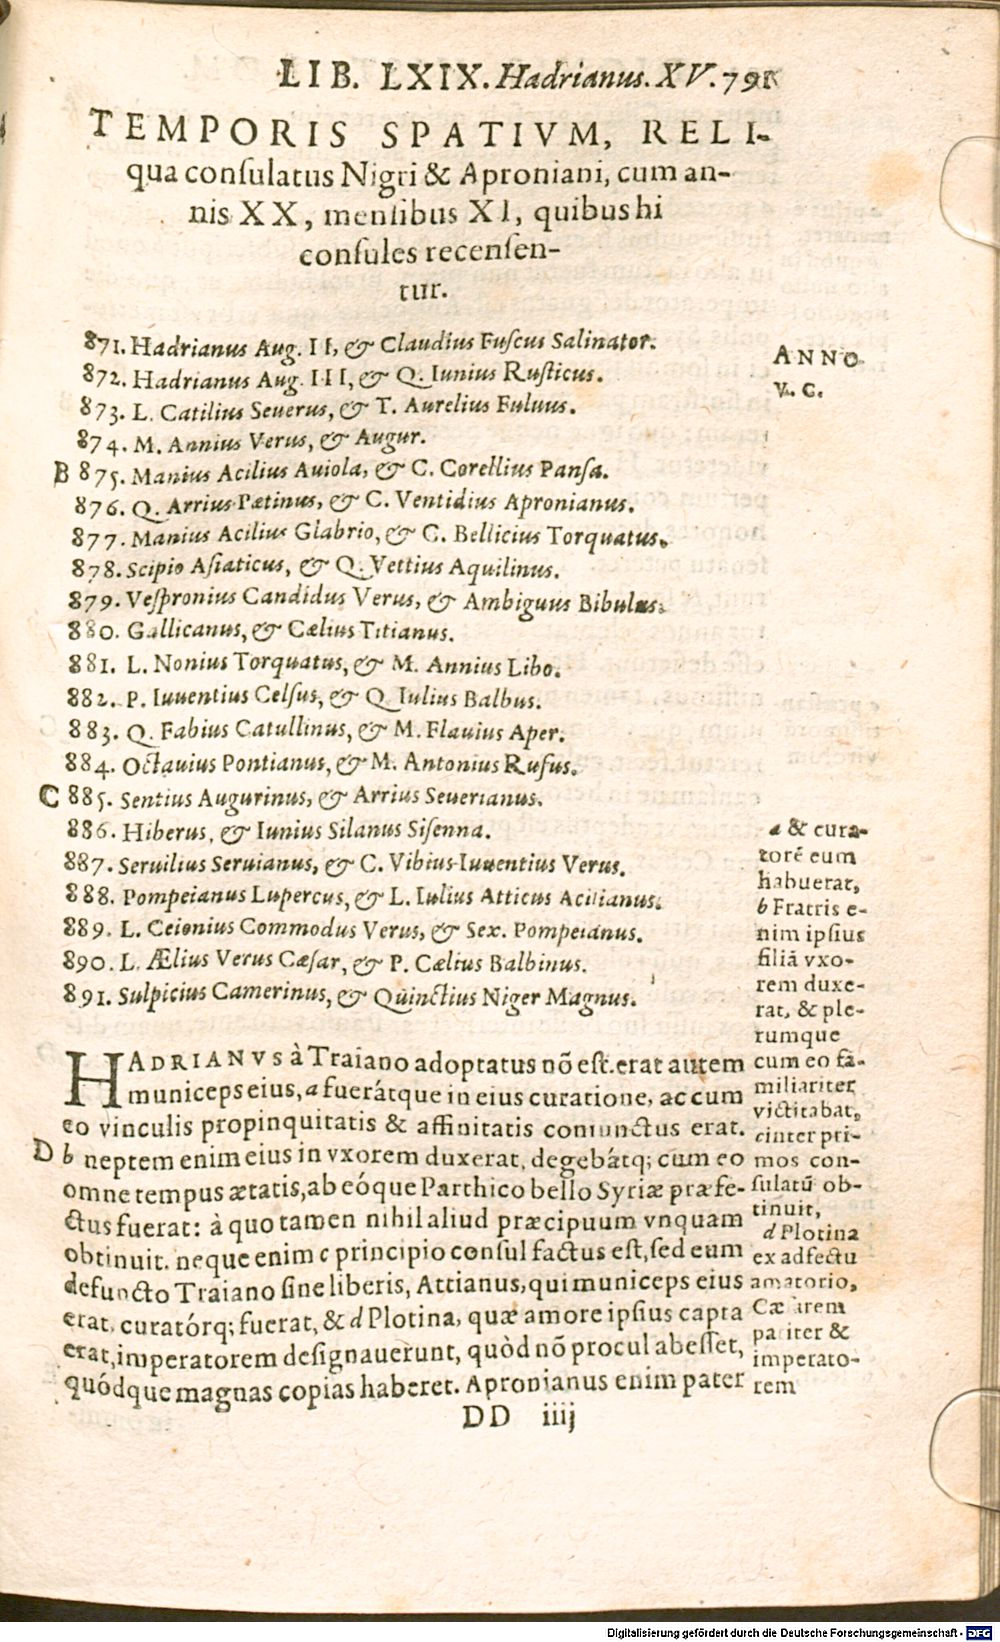 LIB. LXIX. Hadrianus. XV. 791
TEMPORIS SPATIVM, RELI-
qua conſulatus Nigri & Aproniani, cum an-
nis XX, menſibus XI, quibus hi
conſules recenſen-
tur.
871. Hadrianus Aug. II, & Claudius Fuſcus Salinator.
872. Hadrianus Aug. III, & Q. Iunius Ruſticus.
873. L. Catilius Seuerus, & T. Aurelius Fuluus.
874. M. Annius Verus, & Augur.
B 875. Manius Acilius Auiola, & C. Corellius Panſa.
876. Q. Arrius Pætinus, & C. Ventidius Apronianus.
877. Manius Acilius Glabrio, & C. Bellicius Torquatus.
878. Scipio Aſiaticus, & Q. Vettius Aquilinus.
879. Veſpronius Candidus Verus, & Ambiguus Bibulus.
880. Gallicanus, & Cælius Titianus.
881. L. Nonius Torquatus, & M. Annius Libo.
882. P. Iuuentius Celſus, & Q. Iulius Balbus.
883. Q. Fabius Catullinus, & M. Flauius Aper.
884. Octauius Pontianus, & M. Antonius Rufus.
C 885. Sentius Augurinus, & Arrius Seuerianus.
886. Hiberus, & Iunius Silanus Siſenna.
887. Seruilius Seruianus, & C. Vibius Iuuentius Verus.
888. Pompeianus Lupercus, & L. Iulius Atticus Acilianus.
889. L. Ceionius Commodus Verus, & Sex. Pompeianus.
890. L. Ælius Verus Cæſar, & P. Cælius Balbinus.
891. Sulpicius Camerinus, & Quinctius Niger Magnus.
ANNO
V. C.
HADRIANVS à Traiano adoptatus nõ eſt. erat autem
municeps eius, a fuerátque in eius curatione, ac cum
eo vinculis propinquitatis & affinitatis coniunctus erat.
D b neptem enim eius in vxorem duxerat, degebátq; cum eo
omne tempus ætatis, ab eóque Parthico bello Syriæ præfe-
ctus fuerat: à quo tamen nihil aliud præcipuum vnquam
obtinuit. neque enim c principio conſul factus eſt, ſed eum
defuncto Traiano ſine liberis, Attianus, qui municeps eius
erat, curatórq; fuerat, & d Plotina, quæ amore ipſius capta
erat, imperatorem deſignauerunt, quòd nõ procul abeſſet,
quódque magnas copias haberet. Apronianus enim pater
a & cura-
torẽ eum
habuerat,
b Fratris e-
nim ipſius
filiã vxo-
rem duxe-
rat, & ple-
rumque
cum eo fa-
miliariter
victitabat,
c inter pri-
mos con-
ſulatũ ob-
tinuit,
d Plotina
ex adfectu
amatorio,
Cæſarem
pariter &
imperato-
rem
DD iiij
Digitalisierung gefördert durch die Deutsche Forschungsgemeinschaft - DFG